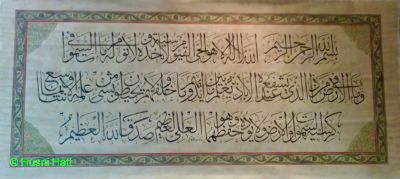 بسم الله الرحمن الرحيم الله لا اله الا هو الحي القيوم لا تأخذه سنة ولا نوم له ما في السموات
وما في الارض من ذا الذي يشفع عنده الا باذنه يعلم ما بين ايديهم وما خلفهم ولا يحيطون بشيء من علمه الا بما شاء وسع
كرسيه السموات والارض ولا يؤده حفظهما وهو العلي العظيم صدق الله العظيم
© Husni Hatt